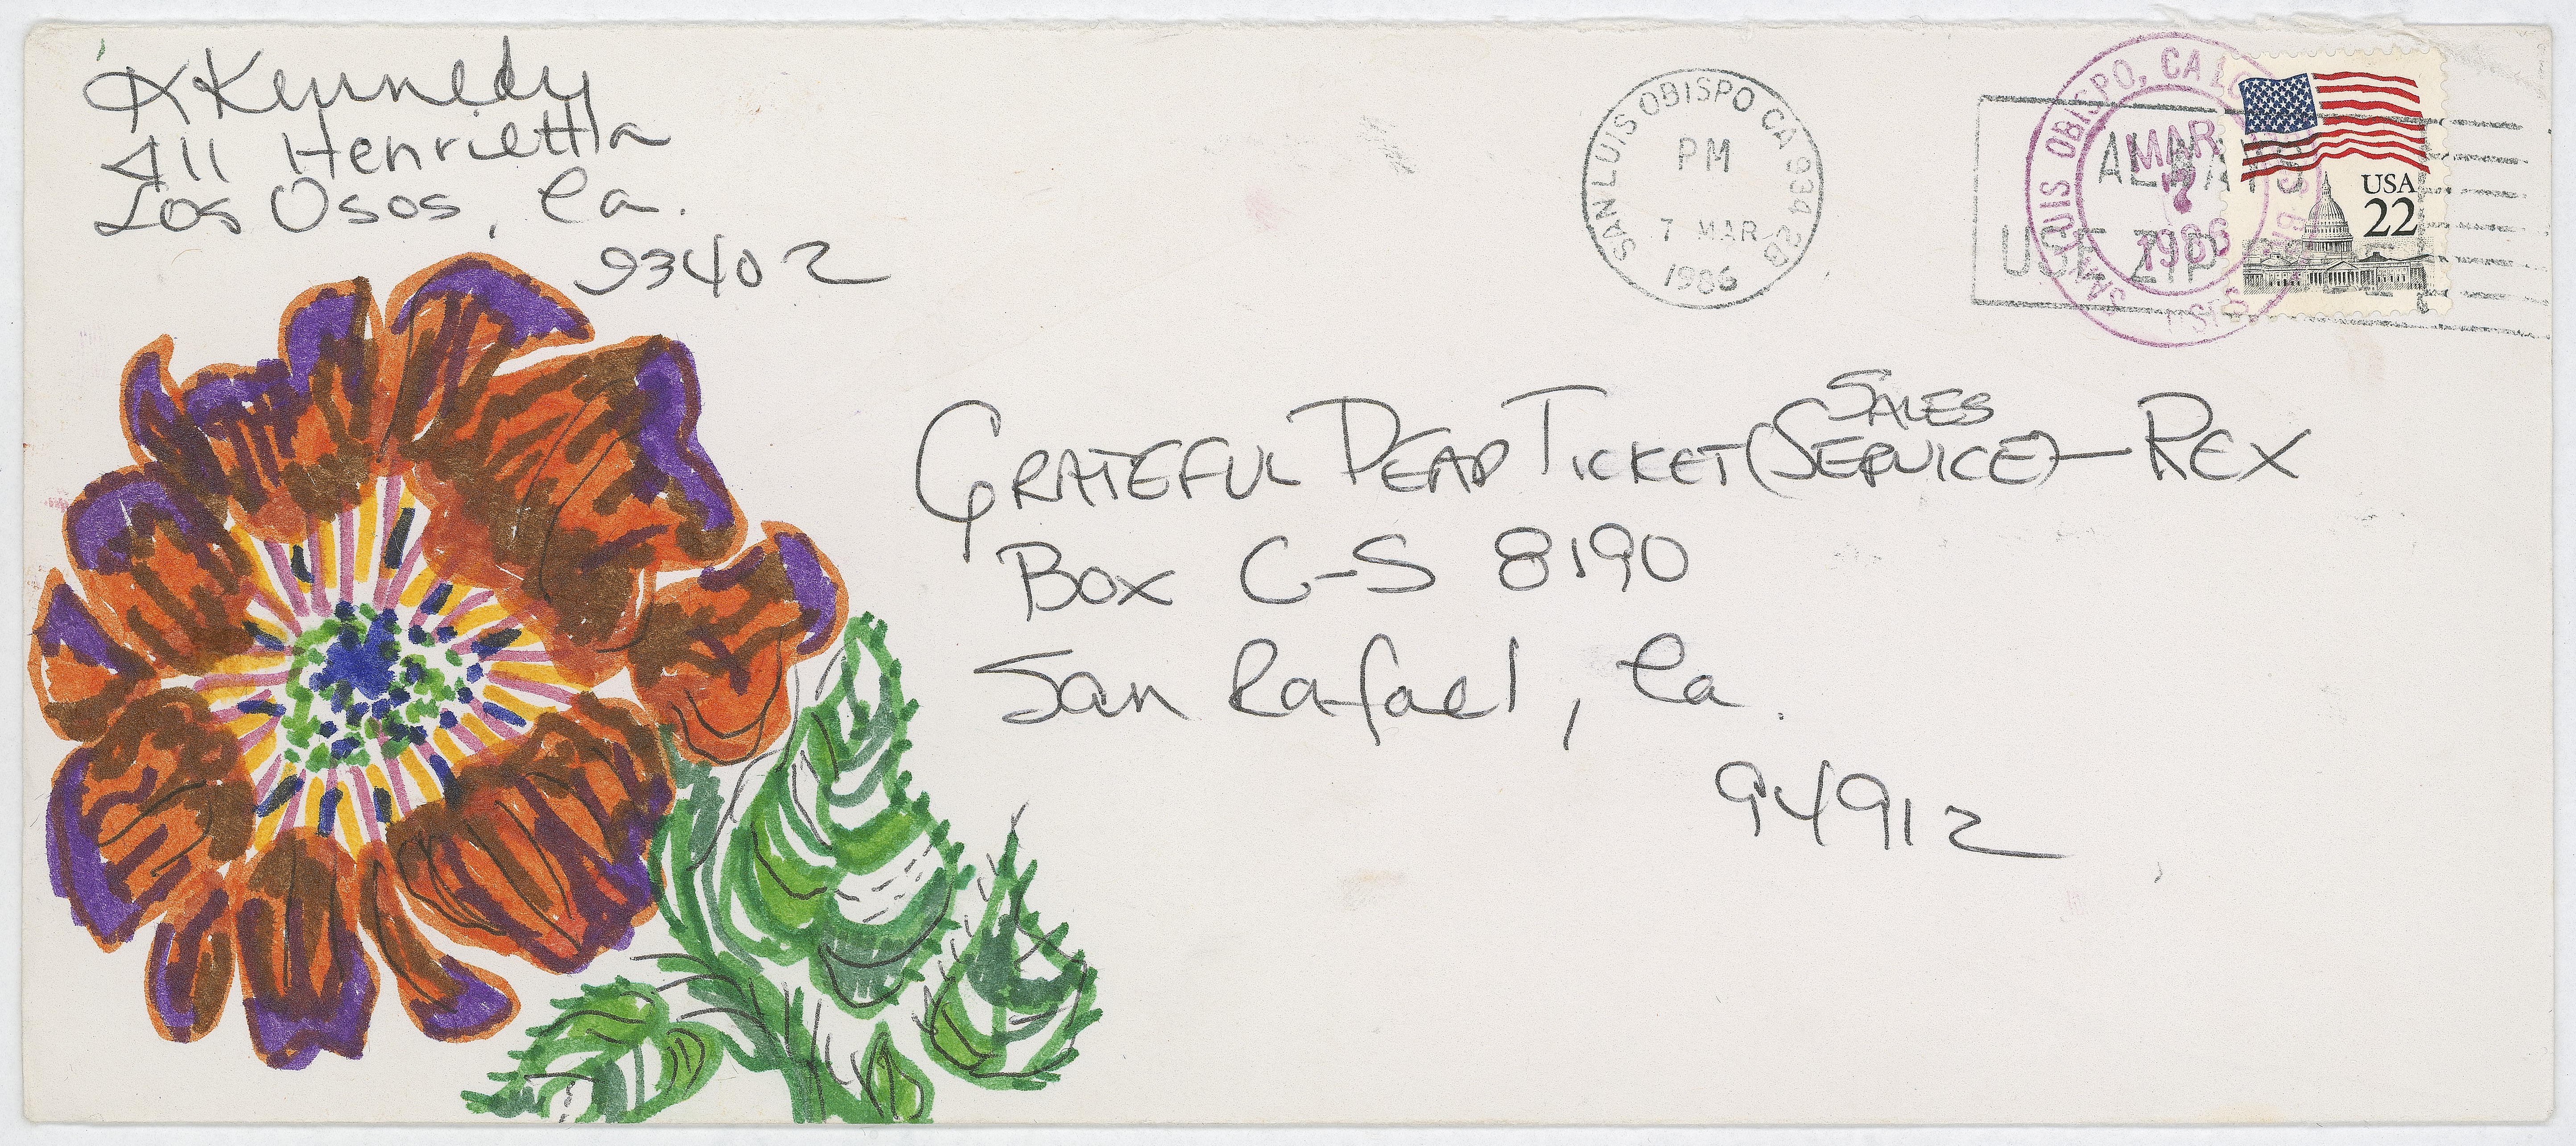 K Kennedy
411 Henrietta
Los Osos, Ca.
93402
SAN LUIS OBISPO CA 934 2B
PM
7 MAR
1986
ALWAYS
USE ZIP
SAN LUIS OBISPO, CA
MAR
7
1986
USPS
USA
22
SALES
GRATEFUL DEAD TICKET (SERVICE) — REX
BOX C-S 8190
San Rafael, Ca.
94912